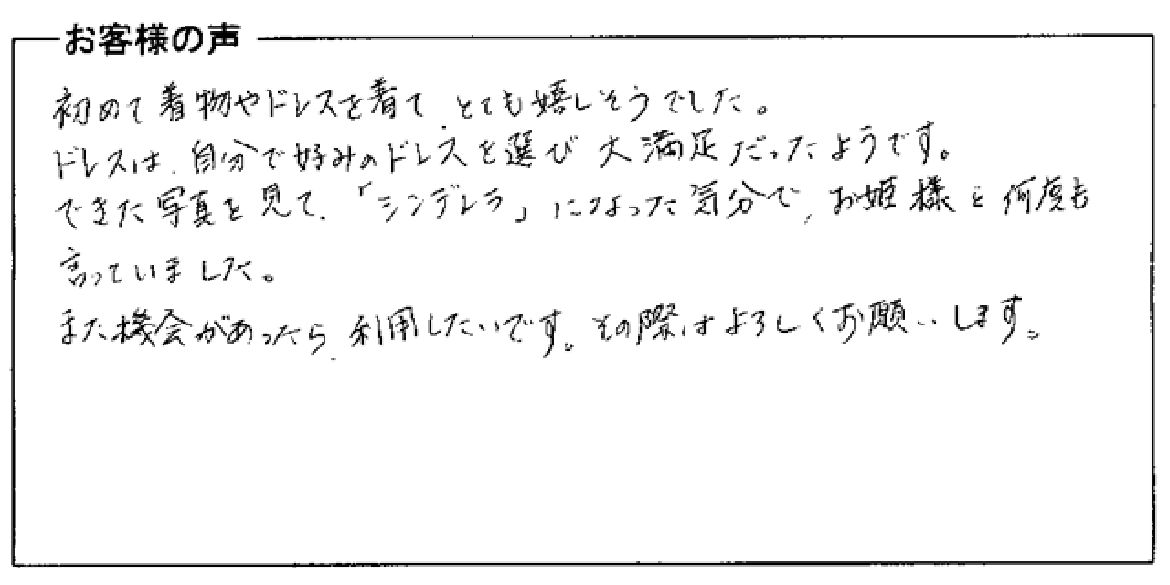 お客様の声
初めて着物やドレスを着て、とても嬉しそうでした。
ドレスは、自分で好みのドレスを選び大満足だったようです。
できた写真を見て、「シンデレラ」になった気分で、お姫様と何度も
言っていました。
また機会があったら、利用したいです。その際はよろしくお願いします。